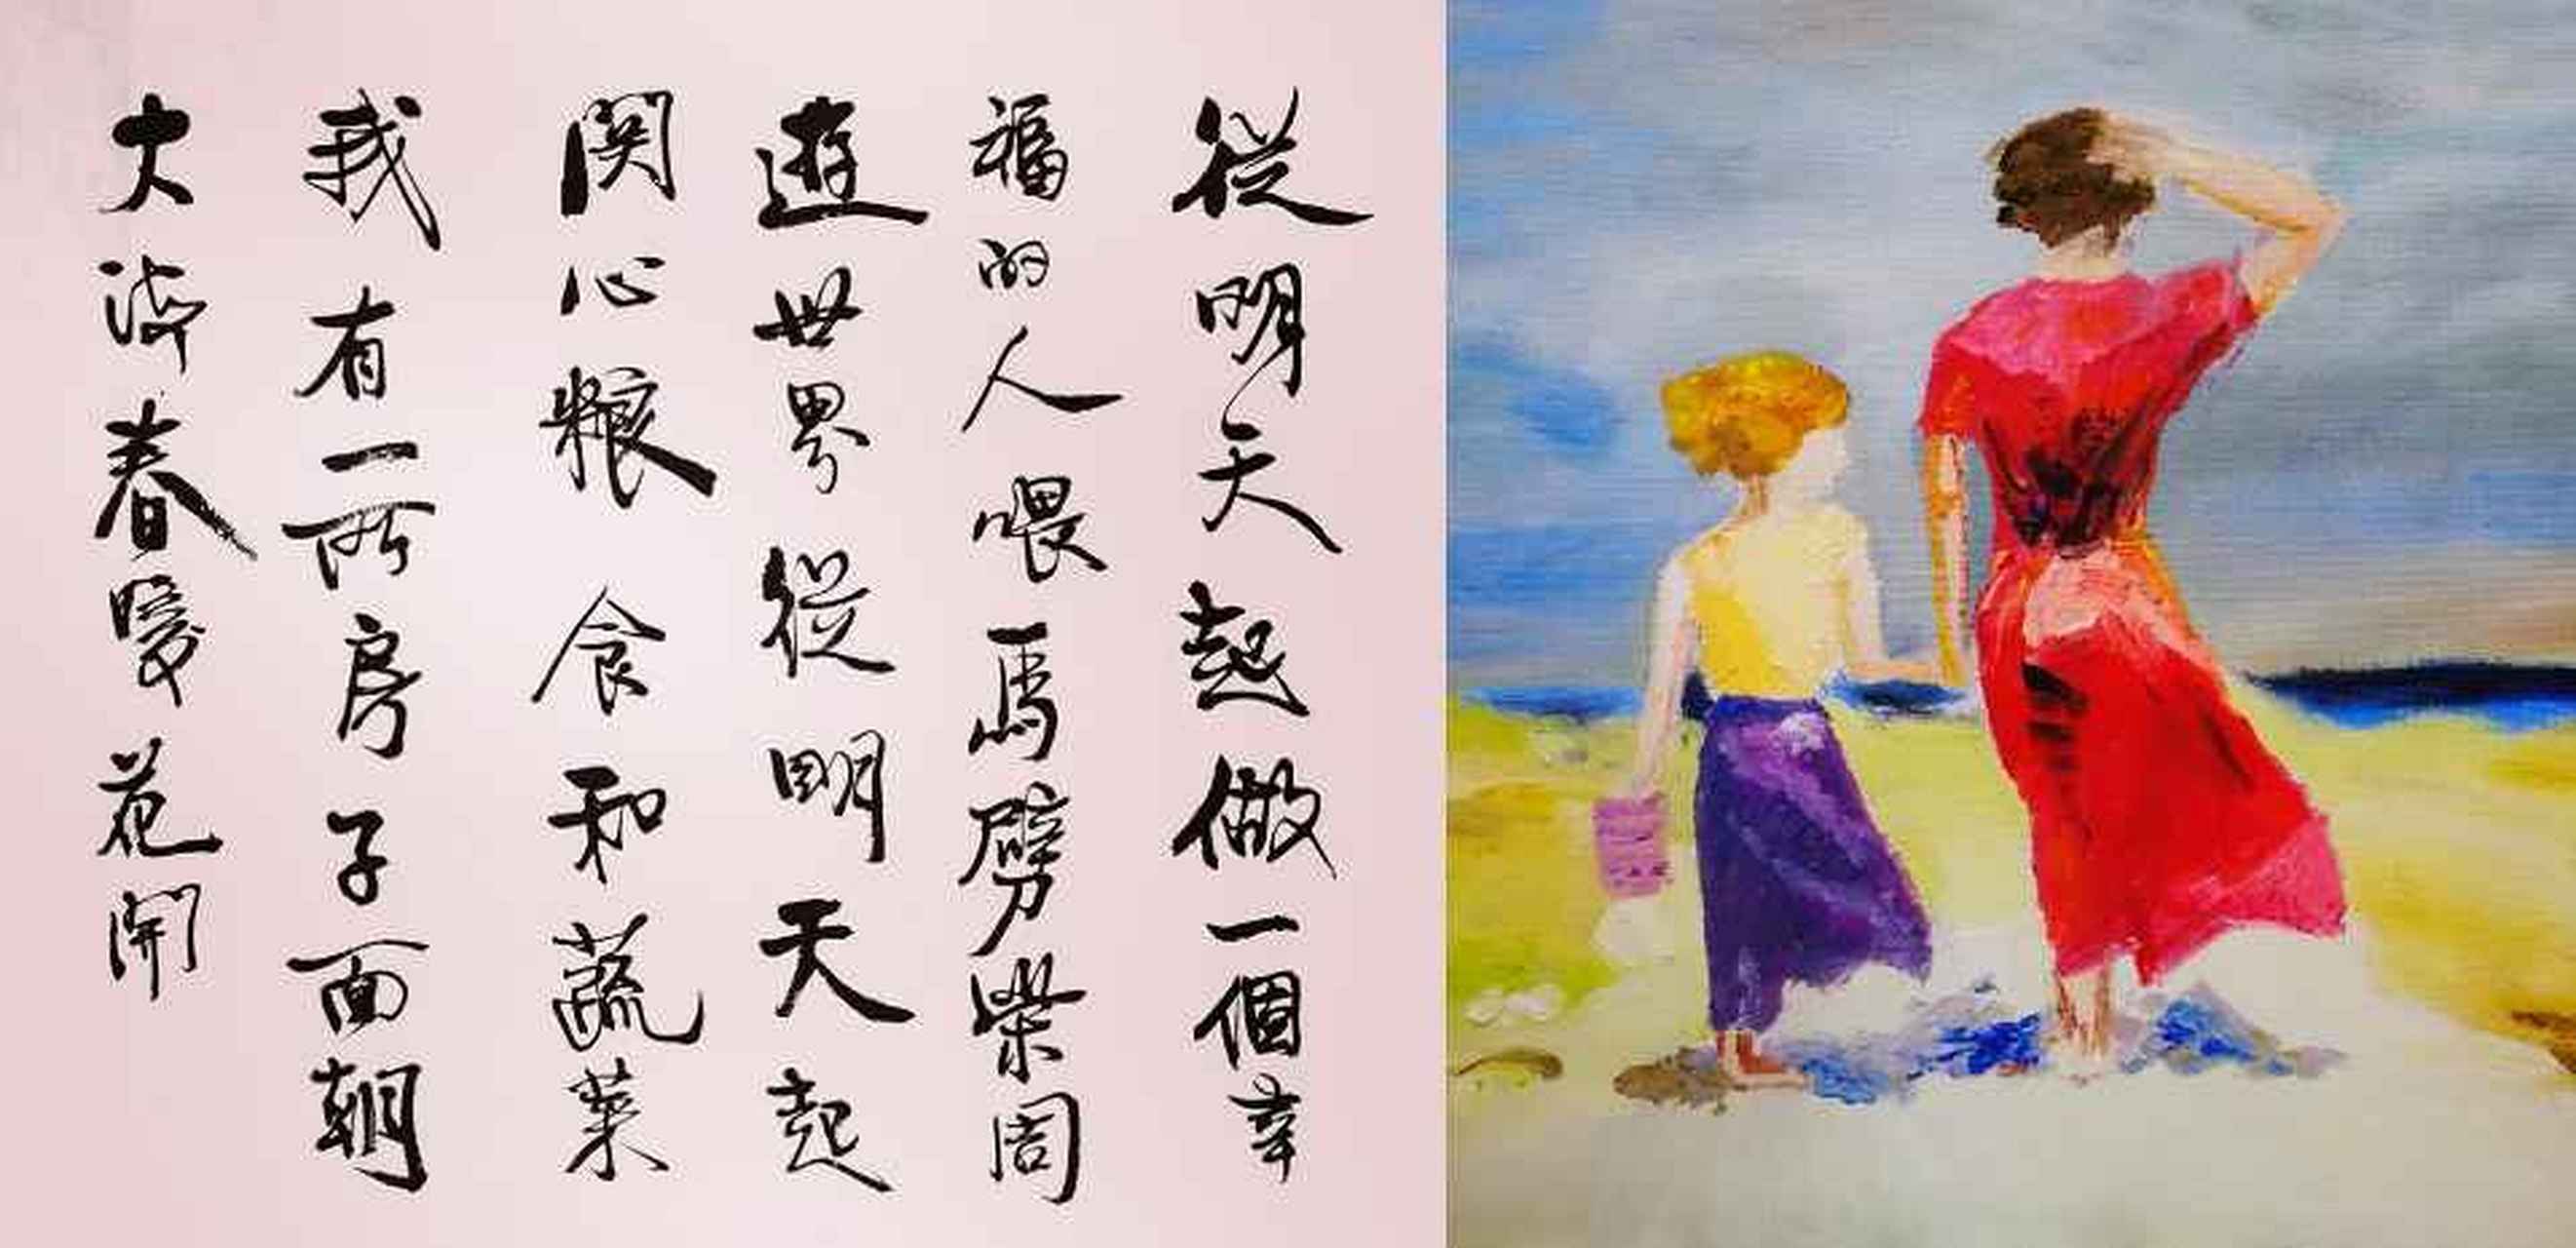 從明天起做一個幸
福的人喂馬劈柴周
遊世界從明天起
関心粮食和蔬菜
我有一所房子面朝
大海春暖花開